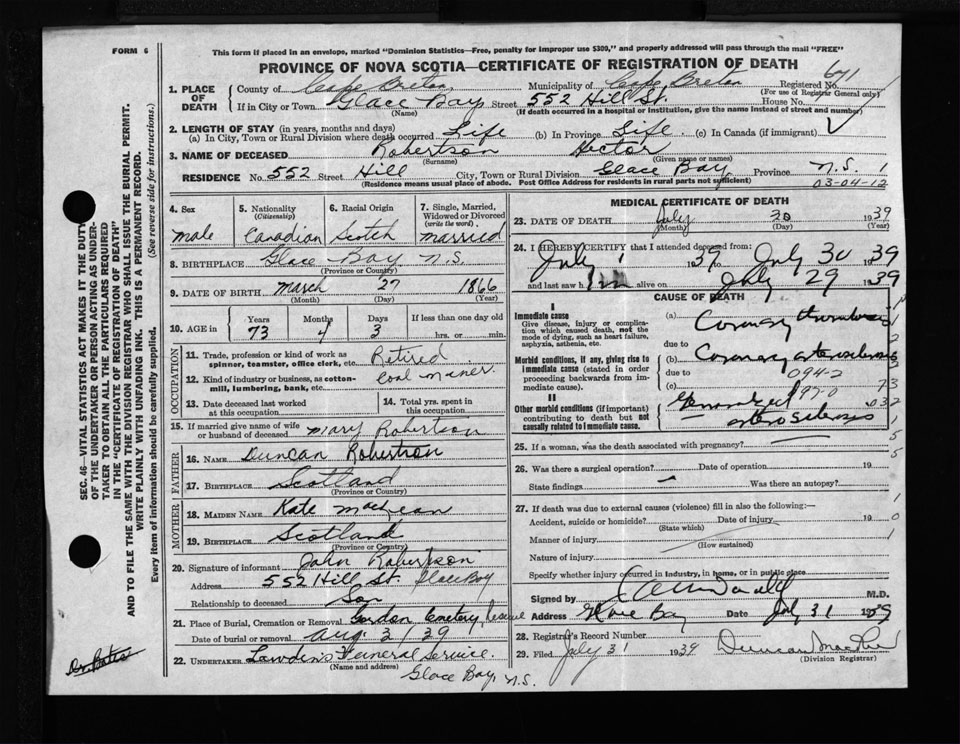 FORM 6
This form if placed in an envelope, marked "Dominion Statistics—Free, penalty for improper use $300," and properly addressed will pass through the mail "FREE"
PROVINCE OF NOVA SCOTIA—CERTIFICATE OF REGISTRATION OF DEATH
SEC. 46—VITAL STATISTICS ACT MAKES IT THE DUTY
OF THE UNDERTAKER OR PERSON ACTING AS UNDER-
TAKER TO OBTAIN ALL THE PARTICULARS REQUIRED
IN THE "CERTIFICATE OF REGISTRATION OF DEATH"
AND TO FILE THE SAME WITH THE DIVISION REGISTRAR WHO SHALL ISSUE THE BURIAL PERMIT.
WRITE PLAINLY WITH UNFADING INK. THIS IS A PERMANENT RECORD.
Every item of information should be carefully supplied. (See reverse side for instructions.)
1. PLACE OF DEATH County of Cape Breton Municipality of Cape Breton Registered No. 671
(For use of Registrar General only)
If in City or Town Glace Bay Street 552 Hill St. House No.
(Name) (If death occurred in a hospital or institution, give the name instead of street and number)
2. LENGTH OF STAY (in years, months and days)
(a) In City, Town or Rural Division where death occurred Life (b) In Province Life. (c) In Canada (if immigrant)
3. NAME OF DECEASED Robertson Hector
(Surname) (Given name or names)
RESIDENCE No. 552 Street Hill City, Town or Rural Division Glace Bay Province N.S. 1
(Residence means usual place of abode. Post Office Address for residents in rural parts not sufficient) 03-04-12
4. Sex
male
5. Nationality (Citizenship)
Canadian
6. Racial Origin
Scotch
7. Single, Married, Widowed or Divorced (write the word)
married
8. BIRTHPLACE Glace Bay N.S.
(Province or Country)
9. DATE OF BIRTH March 27 1866
(Month) (Day) (Year)
10. AGE in Years Months Days If less than one day old
73 4 3 hrs. or min.
OCCUPATION
11. Trade, profession or kind of work as spinner, teamster, office clerk, etc. Retired
12. Kind of industry or business, as cotton-mill, lumbering, bank, etc. Coal miner.
13. Date deceased last worked at this occupation
14. Total yrs. spent in this occupation
15. If married give name of wife or husband of deceased Mary Robertson
FATHER
16. NAME Duncan Robertson
17. BIRTHPLACE Scotland
(Province or Country)
MOTHER
18. MAIDEN NAME Kate MacLean
19. BIRTHPLACE Scotland
(Province or Country)
20. Signature of informant John Robertson
Address 552 Hill St. Glace Bay
Relationship to deceased Son
21. Place of Burial, Cremation or Removal Gordon Cemetery Reserve
Date of burial or removal Aug 2/39
22. UNDERTAKER Lawden's Funeral Service.
(Name and address)
Glace Bay, N.S.
Dr. Bates
MEDICAL CERTIFICATE OF DEATH
23. DATE OF DEATH July 30 1939
(Month) (Day) (Year)
24. I HEREBY CERTIFY that I attended deceased from:
July 1 1939 to July 30 1939
and last saw him alive on July 29 1939
CAUSE OF DEATH
I
Immediate cause
Give disease, injury or complication which caused death, not the mode of dying, such as heart failure, asphyxia, asthenia, etc.
(a) Coronary thrombosis
due to
Morbid conditions, if any, giving rise to immediate cause (stated in order proceeding backwards from immediate cause).
(b) Coronary arteriosclerosis
due to 094-2
(c) 97-0
II
Other morbid conditions (if important) contributing to death but not causally related to immediate cause.
Generalized arteriosclerosis
25. If a woman, was the death associated with pregnancy?
26. Was there a surgical operation? Date of operation 19
State findings Was there an autopsy?
27. If death was due to external causes (violence) fill in also the following:—
Accident, suicide or homicide? Date of injury 19
(State which)
Manner of injury
(How sustained)
Nature of injury
Specify whether injury occurred in industry, in home, or in public place
Signed by M.D.
Address Glace Bay Date July 31 1939
28. Registrar's Record Number
29. Filed July 31 1939 Duncan
(Division Registrar)